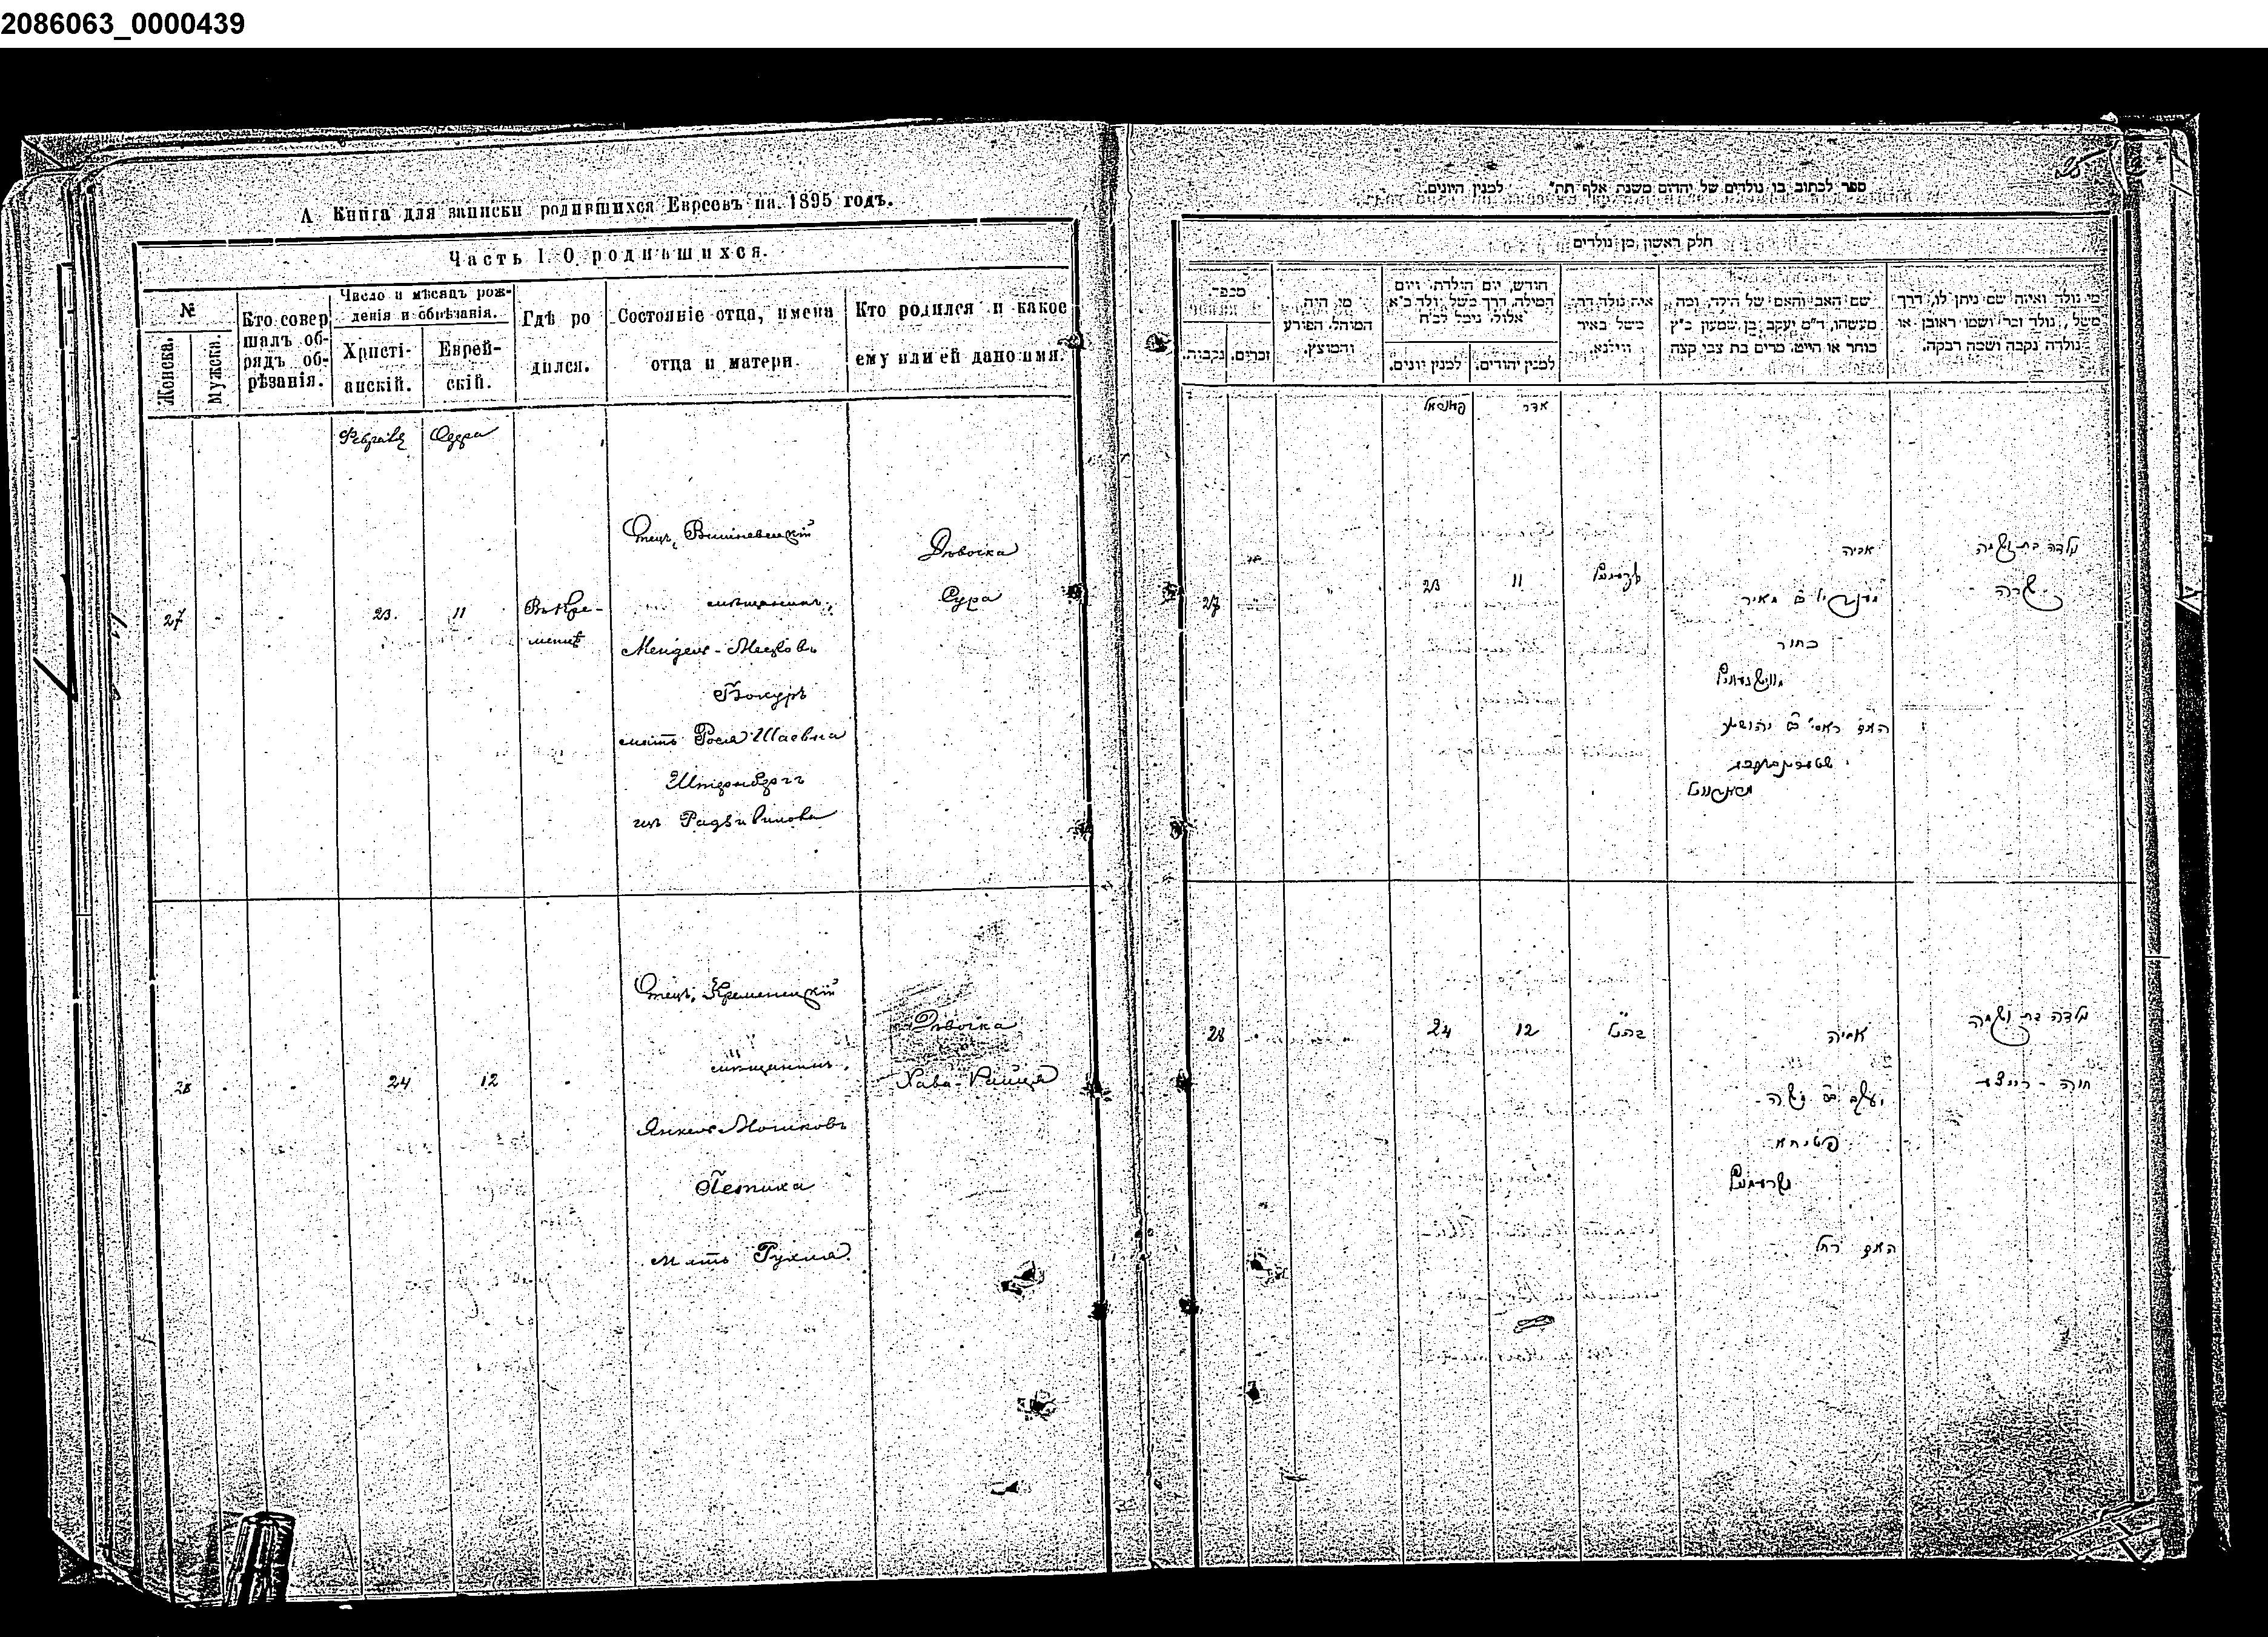 2086063_0000439
А Книга для записки родившихся Евреевъ на 1895 годъ.
Часть I. О родившихся.
№
Женска.
Мужска.
Кто совер
шалъ об-
рядъ об-
рѣзанія.
Число и мѣсяцъ рож-
денія и обрѣзанія.
Христі-
анскій.
Еврей-
скій.
Гдѣ ро
дился.
Состояніе отца, имена
отца и матери.
Кто родился и какое
ему или ей дано имя.
Февраля
Одера
27
23.
11
Въ Кре-
менцѣ
Отецъ, Вишневецкій
мѣщанинъ,
Мендель-Мееровъ
Бокуръ
мать Рося Шаевна
Штернбергъ
изъ Радзивилова
Дѣвочка
Сура
28
24
12
Отецъ, Кременецкій
мѣщанинъ,
Янкель Мошковъ
Петиха
мать Рухля.
Дѣвочка
Хава-Райця
ספר לכתוב בו נולדים של יהדים משנת אלף תת״ למנין היונים.
חלק ראשון מן נולדים
מספר
נקבות.
זכרים.
מי היה
המוהל, הפורע
והמוצץ.
חודש, יום הילדת, ויום
המילה, דרך משל, ילד כ״א
אלול, נימל לכ״ח
למנין יונים.
למנין יהודים.
איה נולד, דרך
משל באיר
ווילנא.
שם האב והאם של הילד, ומה
מעשהו, ד״מ יעקב בן שמעון כ״ץ
סוחר או חייט, מרים בת צבי קצה
מי נולד ואיזה שם ניתן לו, דרך
משל, נולד זכר ושמו ראובן או
נולדה נקבה ושמה רבקה.
אדר
27
23
11
אביה
מאיר
בחור
האם
יהושע
שרה
28
24
12
אביה
יעקב
משה
פטיחא
האם רחל
חוה - רייצא